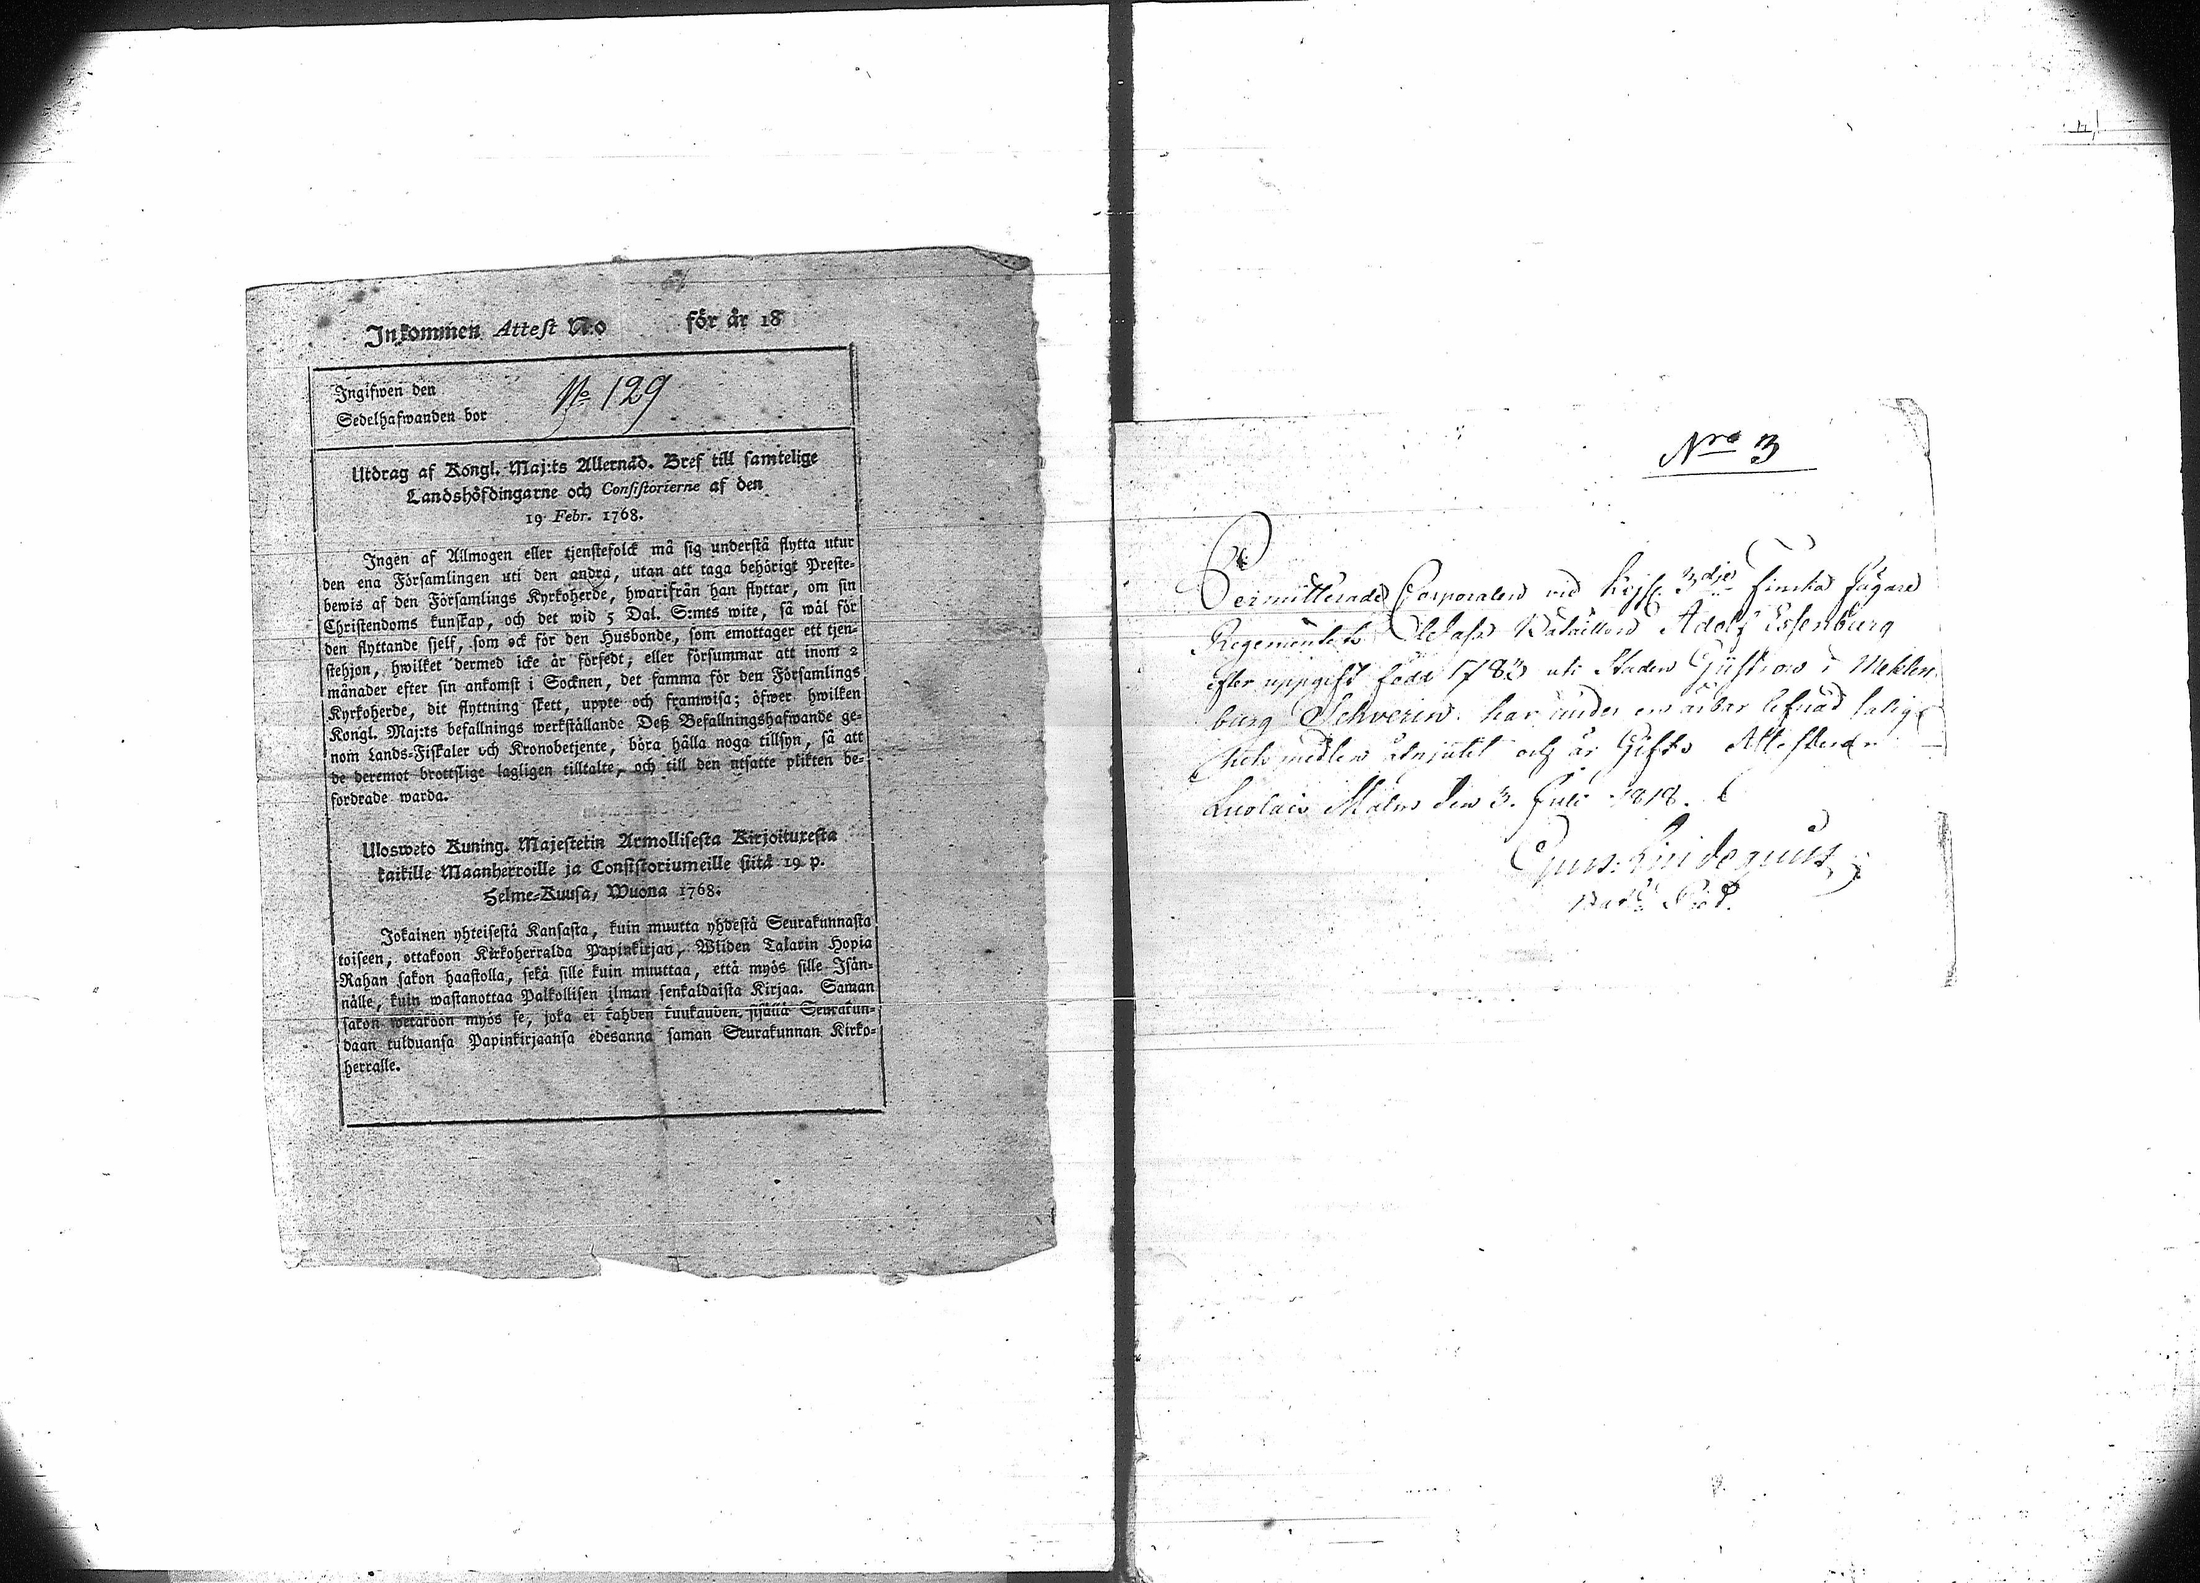 Inkommen Attest N:o för år 18
Ingifwen den
Sedelhafwanden bor
No 129
Utdrag af Kongl. Maj:ts Allernåd. Bref till samtelige
Landshöfdingarne och Consistorierne af den
19 Febr. 1768.
Ingen af Allmogen eller tjenstefolck må sig understå flytta utur
den ena Församlingen uti den andra, utan att taga behörigt Preste-
bewis af den Församlings Kyrkoherde, hwarifrån han flyttar, om sin
Christendoms kunskap, och det wid 5 Dal. S:mts wite, så wäl för
den flyttande sjelf, som ock för den Husbonde, som emottager ett tjen-
stehjon, hwilket dermed icke är försedt; eller försummar att inom 2
månader efter sin ankomst i Socknen, det samma för den Församlings
Kyrkoherde, dit flyttning skett, uppte och framwisa; öfwer hwilken
Kongl. Maj:ts befallnings werkställande Deß Befallningshafwande ge-
nom Lands-Fiskaler och Kronobetjente, böra hålla noga tillsyn, så att
de deremot brottslige lagligen tilltalte, och till den utsatte plikten be-
fordrade warda.
Ulosweto Kuning. Majestetin Armollisesta Kirjoituxesta
kaikille Maanherroille ja Consistoriumeille siitä 19 p.
Helme-Kuusa, Wuona 1768.
Jokainen yhteisestä Kansasta, kuin muutta yhdestä Seurakunnasta
toiseen, ottakoon Kirkoherralda Papinkirjan, Wiiden Talarin Hopia
Rahan sakon haastolla, sekä sille kuin muuttaa, että myös sille Isän-
nälle, kuin wastanottaa Palkollisen ilman senkaldaista Kirjaa. Saman
sakon wetäköön myös se, joka ei kahden kuukauden sisällä Seurakun-
daan tulduansa Papinkirjaansa edesanna saman Seurakunnan Kirko-
herralle.
Nro 3
Permitterade Corporalen vid Kejs. 3dje Finska Jägare
Regementets Bataillon Adolf Essenburg
efter uppgift född 1783 uti Staden Güstrow i Meklen-
burg Schverin har under en ärbar lefnad salig-
hets medlen åtnjutit och är Gift. Attesterar
Kuolais Malm den 3. Juli 1818.